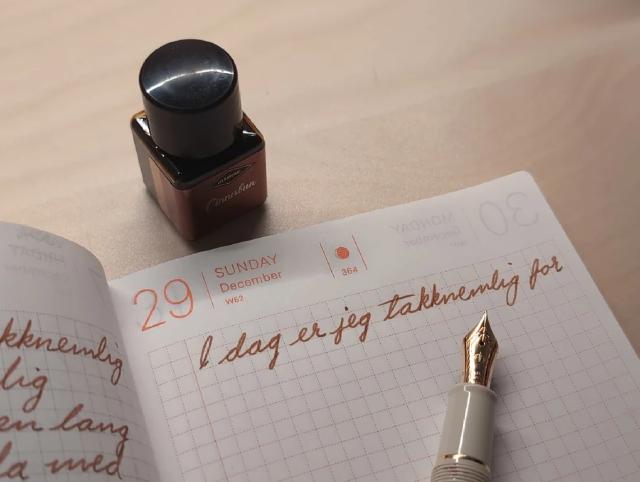 Cinnabun
29
SUNDAY
December
W52
364
30
MONDAY
December
I dag er jeg takknemlig for
kknemlig
lig
en lang
la med